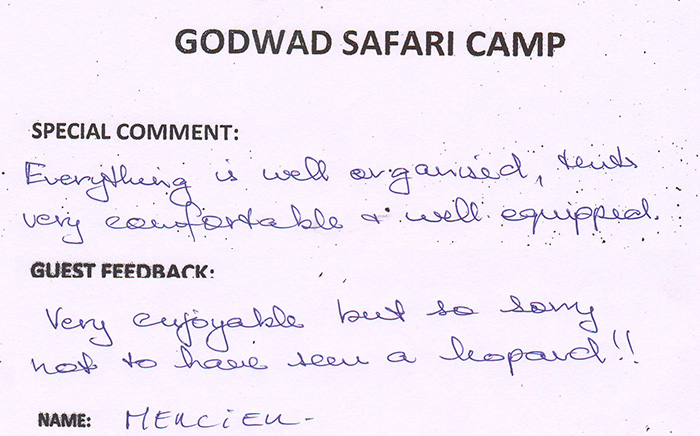 GODWAD SAFARI CAMP
SPECIAL COMMENT:
Everything is well organised, tents
very comfortable & well equipped.
GUEST FEEDBACK:
Very enjoyable but so sorry
not to have seen a leopard!!
NAME: MERCIER-